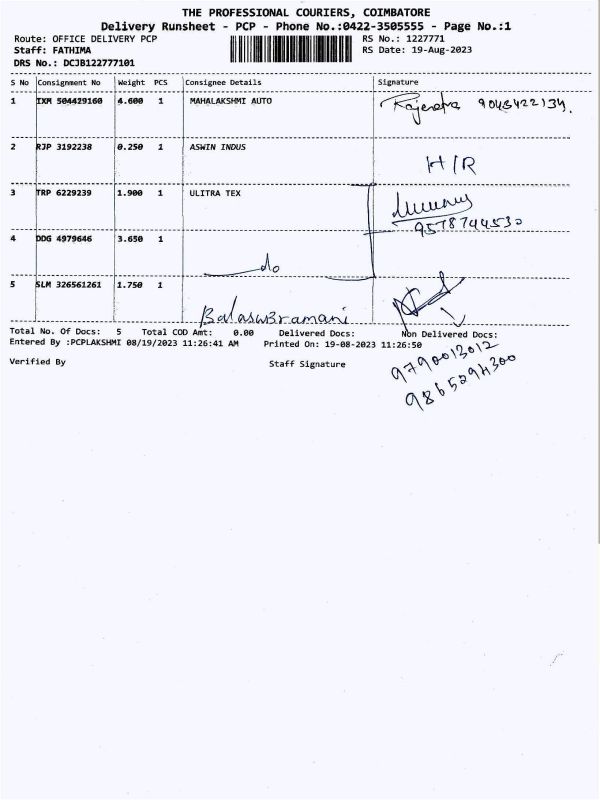 THE PROFESSIONAL COURIERS, COIMBATORE
Delivery Runsheet - PCP - Phone No.:0422-3505555 - Page No.:1
Route: OFFICE DELIVERY PCP RS No.: 1227771
Staff: FATHIMA RS Date: 19-Aug-2023
DRS No.: DCJB122777101
S No Consignment No Weight PCS Consignee Details Signature
1 IXM 504429160 4.600 1 MAHALAKSHMI AUTO Rajendra
2 RJP 3192238 0.250 1 ASWIN INDUS
H/R
3 TRP 6229239 1.900 1 ULITRA TEX
9578744530
4 DDG 4979646 3.650 1
do
5 SLM 326561261 1.750 1
Balasubramani
Total No. Of Docs: 5 Total COD Amt: 0.00 Delivered Docs: Non Delivered Docs:
Entered By :PCPLAKSHMI 08/19/2023 11:26:41 AM Printed On: 19-08-2023 11:26:50
9790013012
Verified By Staff Signature
9865294300